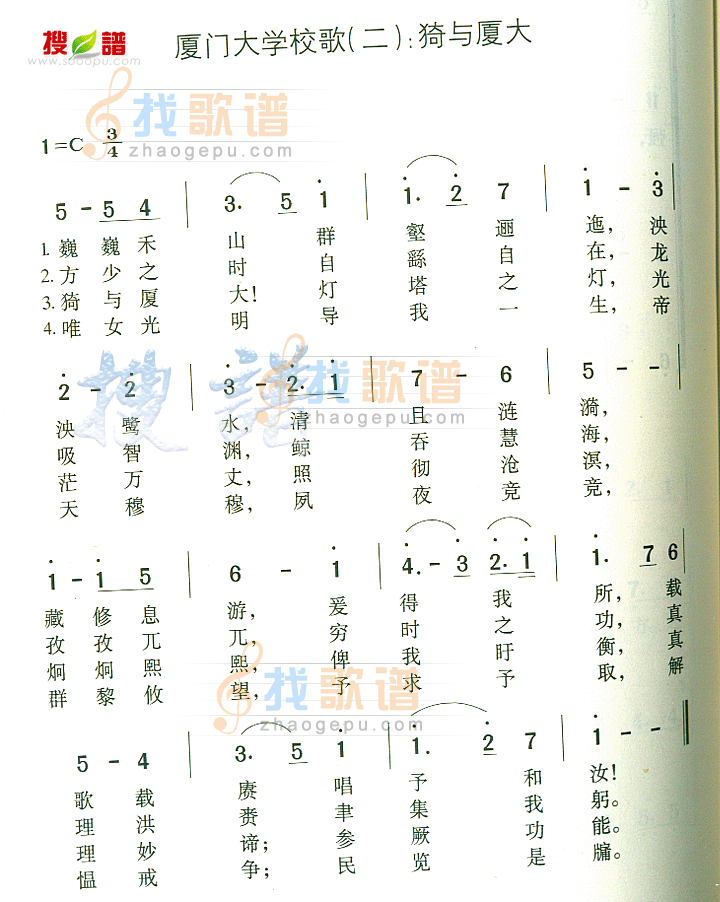 搜谱
www.sooopu.com
厦门大学校歌(二):猗与厦大
找歌谱
zhaogepu.com
1=C 3/4
5 - 5 4 | 3. 5 1 | 1. 2 7 | 1 - 3
1. 巍 巍 禾 山 群 壑 逦 迤, 泱
2. 方 少 之 时 自 繇 自 在, 龙
3. 猗 与 厦 大! 灯 塔 之 灯, 光
4. 唯 女 光 明 导 我 一 生, 帝
2 - 2 | 3 - 2. 1 | 7 - 6 | 5 - -
泱 鹭 水, 清 且 涟 漪,
吸 智 渊, 鲸 吞 慧 海,
茫 万 丈, 照 彻 沧 溟,
天 穆 穆, 夙 夜 竞 竞,
搜谱
找歌谱
zhaogepu.com
1 - 1 5 | 6 - 1 | 4. - 3 2. 1 | 1. 7 6
藏 修 息 游, 爰 得 我 所, 载
孜 孜 兀 兀, 穷 时 之 功, 真
炯 炯 熙 熙, 俾 我 盱 衡, 真
群 黎 攸 望, 予 求 予 取, 解
找歌谱
zhaogepu.com
5 - 4 | 3. 5 1 | 1. 2 7 | 1 - - ‖
歌 载 赓 唱 予 和 汝!
理 洪 赉 聿 集 我 躬。
理 妙 谛; 参 厥 功 能。
愠 戒 争; 民 览 是 牖。